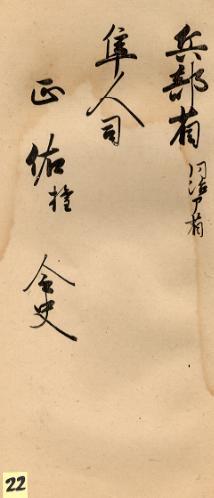 兵部省 同治了省
隼人司
正 佑権 令史
22